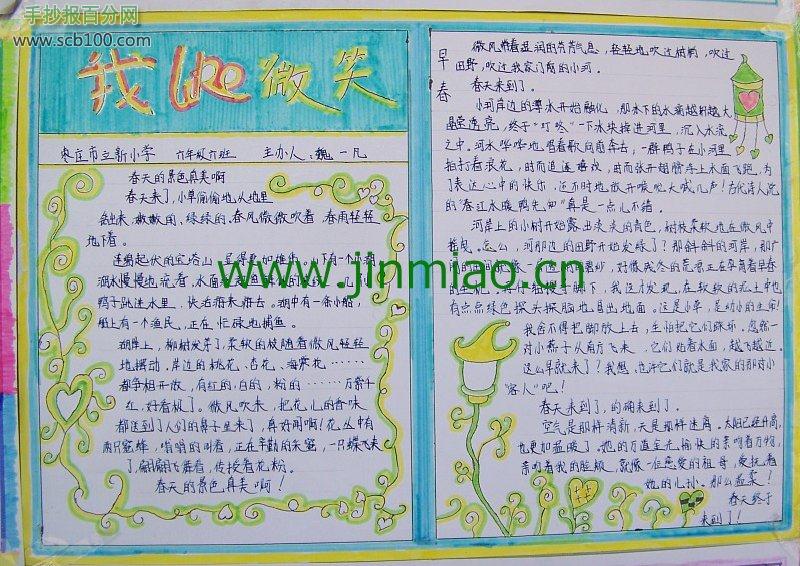 手抄报百分网
www.scb100.com
我 LIKE 微笑
枣庄市立新小学 六年级六班 主办人：魏一凡
春天的景色真美啊
春天来了，小草偷偷地从地里
钻出来，嫩嫩的，绿绿的，春风微微吹着，春雨轻轻
地下着。
鸭子跳进水里，快活
湖中有一条小船，
船上有一个渔民，正在忙碌地捕鱼。
湖岸上，柳树发芽了，柔软的枝随着微风轻轻
地摆动，岸边的桃花、杏花、海棠花……
都争相开放，有红的，白的，粉的……万紫千
红，好看极了。微风吹来，把花儿的香味
都送到了人们的鼻子里来了，真好闻啊！花丛中有
两只蜜蜂，嗡嗡的叫着，正在辛勤的采蜜，一只蝶飞来
了，翩翩飞舞着，传授着花粉。
春天的景色真美啊！
www.jinmiao.cn
早春
微风带着湿润的芳芳气息，轻轻地吹过树梢，吹过
田野，吹过我家门前的小河。
春天来到了。
小河岸边的薄冰开始融化，那水下的水滴越积越大
晶莹透亮，终于“叮咚”一下冰块掉进河里，沉入水流
之中。河水哗哗地唱着歌向前奔去，一群鸭子在小河里
拍打着浪花，时而追逐嬉戏，时而张开翅膀浮上水面飞跑，为
了表达心中的快乐，还不时地放开喉咙大喊几声！古代诗人说
的“春江水暖鸭先知”真是一点儿不错。
河岸上的小树开始露出淡淡的青色，树枝柔软地在微风中
摇晃。怎么，河那边的田野开始发绿了？那斜斜的河岸，那广
脚下，我这才发现，在软软的泥土中也
有点点绿色探头探脑地日出地面。这是小草，是幼小的生命！
我舍不得把脚放上去，生怕把它们踩坏，忽然一
对小燕子从南方飞来，它们贴着水面，越飞越近。
这么早就来了？我想，也许它们就是我家的那对小
“客人”吧！
春天来到了，的确来到了。
空气是那样清新，天是那样迷离，太阳已经升高，
也更加温暖了。她的万道金光愉快的亲吻着万物，
亲吻着我的脸颊，就像一位慈爱的祖母，爱抚着
她的儿孙。那么温柔！
春天终于
来到了！